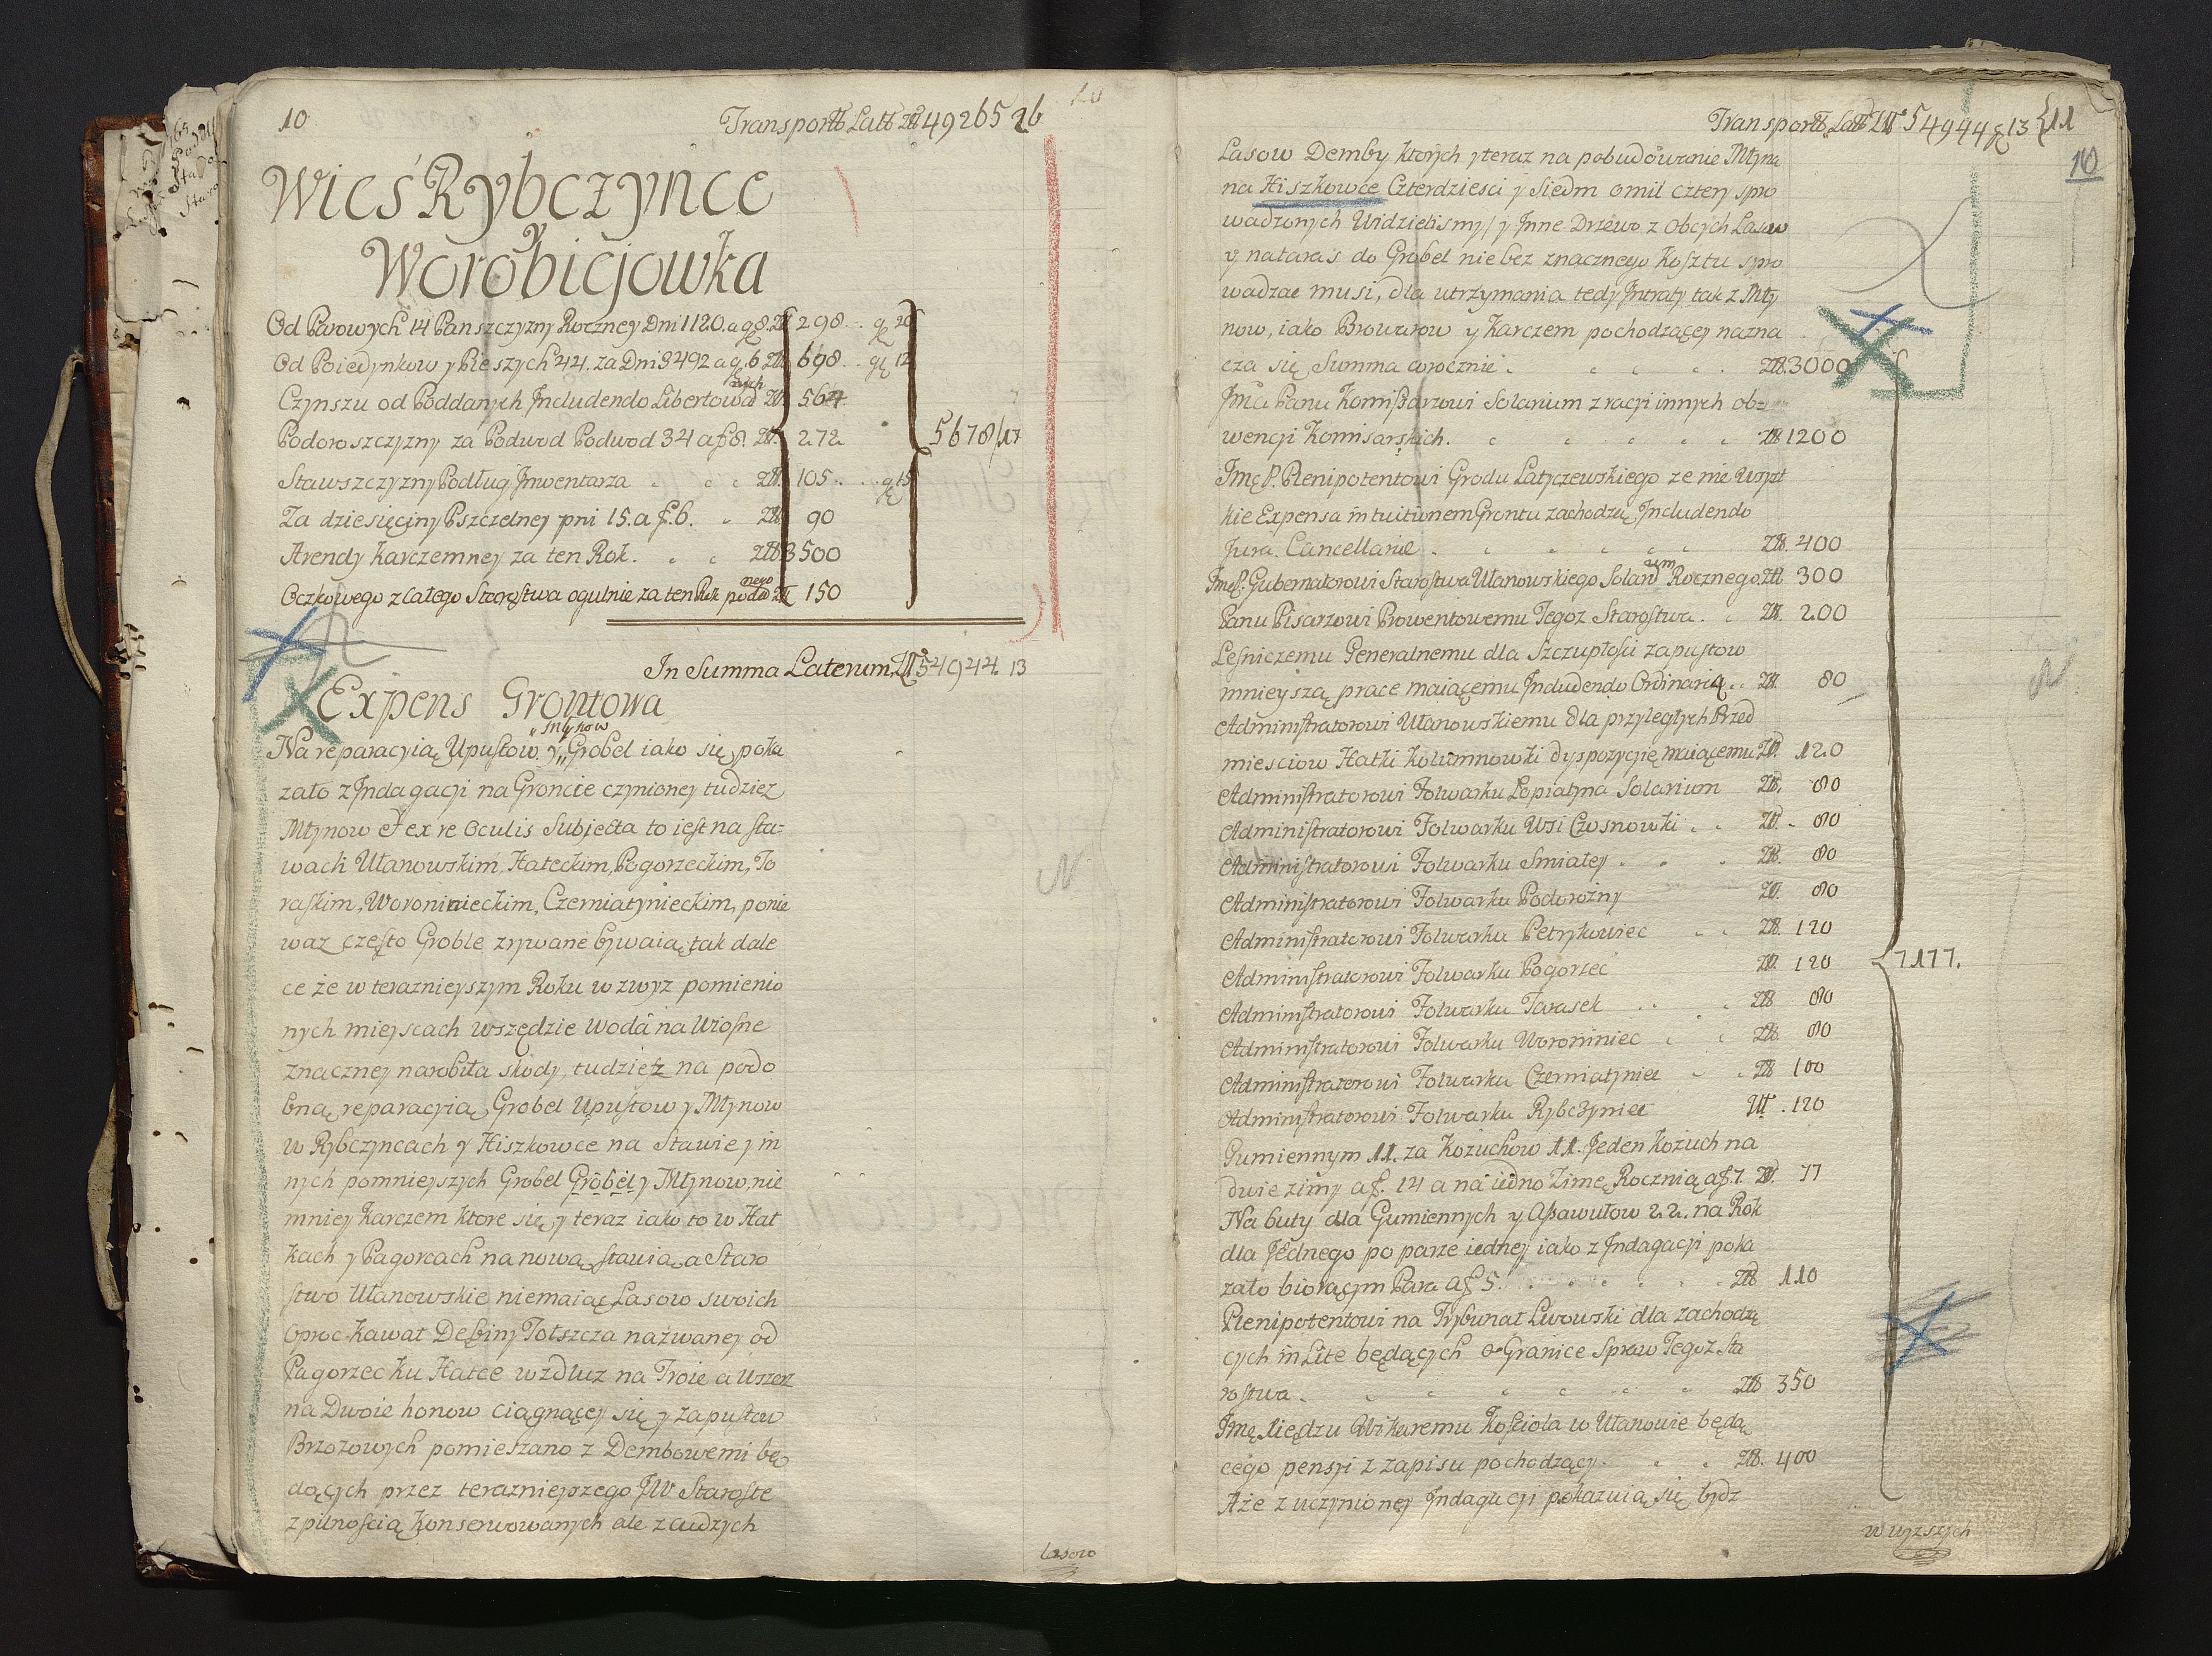 10
Transportt Latt Złł 49265 26
Wieś Rybczynce
y
Worobicjowka
Od Parowych 14 Panszczyzny Roczney Dni 1120. a gę 8. Złł 298 .. gę 20
Od Poiedynkow y Pieszych 44. za Dni 3492 a gę 6 Złł 698 .. gę 12
Czynszu od Poddanych Includendo Libertowanych Złł 564
Podoroszczyzny za Podwod Podwod 34 a f 8. Złł. 272
5678/17
Stawszczyzny Podług Inwentarza Złł 105 .. gę 15
Za dziesięciny Pszczelney pni 15. a f. 6. Złł 90
Arendy Karczemney za ten Rok. Złł 3500
Oczkowego z całego Starostwa ogulnie za ten Rok podanego Złł 150
In Summa Laterum, Złł 54944. 13
Expens Grontowa
Na reparacyią Upustow, Młynow y Grobel iako się poka
zało z Indagacyi na Groncie czynioney tudziez
Młynow et ex re oculis Subiecta to iest na sta=
wach Ułanowskim, Hateckim, Pogorzeckim, Ta
raskim, Woroninieckim, Czerniatynieckim, ponie
waz często Groble zrywane bywaią, tak dale
ce że w teraznieyszym Roku w zwyz pomienio
nych mieyscach wszędzie Woda na Wiosne
znaczney narobiła skody, tudzież na podo
bną reparacyią Grobel Upustow y Młynow
w Rybczyncach y Hiszkowce na Stawie y in
nych pomnieyszych Grobel Grobel y Młynow, nie
mniey Karczem ktore się y teraz iako to w Hat
kach y Pagorcach na nowa stawia, a Staro
stwo Ułanowskie niemaiąc Lasow swoich
oproc Kawał Dębiny Totszcza nazwaney od
Pagorzec ku Hatce wzdluz na Troie a Wszerz
na Dwoie honow ciągnącey się y zapustow
Brzozowych pomieszano z Dembowemi bę
dących przez teraznieyszego JW Staroste
z pilnoscią Konserwowanych ale z cudzych
Lasow
Transportt Latt Złł 54944 gę 13 11
10
Lasow Demby ktorych y teraz na pobudowanie Młyna
na Hiszkowce Czterdziesci y Siedm o mil cztery spro
wadzonych Widzielismy/ y Inne Drzewo z Obcych Lasow
y nataras do Grobel nie bez znacznego Kosztu spro
wadzac musi, dla utrzymania tedy Intraty tak z Mły
now, iako Browarow y Karczem pochodzącey nazna
cza się Summa corocznie. Złł. 3000
Jmć Panu Komissarzowi Solarium z racyi innych ob=
wencyi Komisarskich. Złł 1200
Jmę P. Plenipotentowi Grodu Latyczewskiego ze nie wszst
kie Expensa intuitu nem Grontu zachodzą, Includendo
Jura. Cancellariae. Złł. 400
Jmę P. Gubernatorowi Starostwa Ułanowskiego Solarium Rocznego. Złł 300
Panu Pisarzowi Prowentowemu Tegoz Starostwa. Złł. 200
Lesniczemu Generalnemu dla Szczupłosci zapustow
mnieyszą prace maiącemu Includendo Ordinarią. Złł. 80
Administratorowi Ułanowskiemu dla przyległych Przed
miesciow Hatki Kolumnowki dyspozycyię maiącemu Złł. 120
Administratorowi Folwarku Łopiatyna Solarium Złł. 80
Administratorowi Folwarku Wsi Czosnowki Złł. 80
Administratorowi Folwarku Smiałey. Złł. 80
Administratorowi Folwarku Podorożny Złł. 80
Administratorowi Folwarku Petrykowiec Złł. 120
Administratorowi Folwarku Pogorzec Złł. 120
7177.
Administratorowi Folwarku Tarasek Złł 80
Administratorowi Folwarku Woroniniec Złł. 80
Administratorowi Folwarku Czerniatyniec Złł 100
Administratorowi Folwarku Rybczyniec Złł. 120
Gumiennym 11. za Kożuchow 11. Jeden Kożuch na
dwie zimy a f. 14 a na iedno Zimę Rocznią a f. 7. Złł. 77
Na buty dla Gumiennych y Assawułow 22. na Rok
dla Jednego po parze iedney iako z Indagacyi poka
zało biorącym Para a f 5. Złł 110
Plenipotentowi na Trybunał Lwowski dla zachodzą
cych in Lite będących o Granice Spraw Tegoż Sta
rostwa. Złł 350
Jmę Xiędzu Wikaremu Kościoła w Ułanowie będą
cego pensyi z zapisu pochodzącey. Złł. 400
A że z uczynioney Indagacyi pokazuią się bydz
w wyzszych